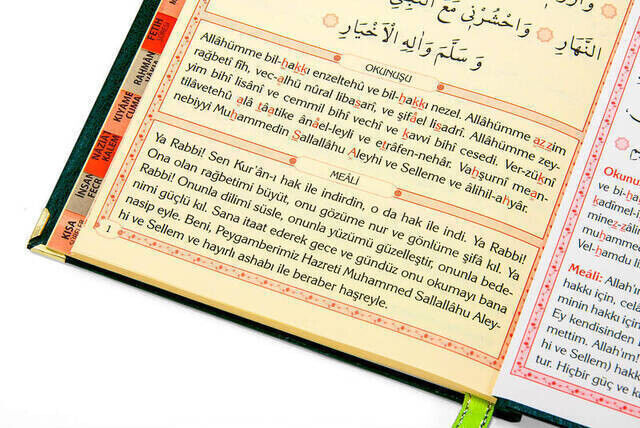 النَّهَارِ وَاحْشُرْنِي مَعَ النَّبِيِّ
وَسَلَّمَ وَاٰلِهِ الْاَخْيَارِ
OKUNUŞU
Allâhümme bil-hakkı enzeltehû ve bil-hakkı nezel. Allâhümme azzim
rağbetî fîh, vec-alhü nûral libasarî, ve şifâel lisadrî. Allâhümme zey-
yim bihî lisânî ve cemmil bihî vechî ve kavvi bihî cesedî. Ver-zükni
tilâvetehû alâ tâatike ânâel-leyli ve etrâfen-nehâr. Vahşurnî mean-
nebiyyi Muhammedin Sallallâhu Aleyhi ve Selleme ve âlihil-ahyâr.
MEÂLİ
Ya Rabbi! Sen Kur'ân-ı hak ile indirdin, o da hak ile indi. Ya Rabbi!
Ona olan rağbetimi büyüt, onu gözüme nur ve gönlüme şifâ kıl. Ya
Rabbi! Onunla dilimi süsle, onunla yüzümü güzelleştir, onunla bede-
nimi güçlü kıl. Sana itaat ederek gece ve gündüz onu okumayı bana
nasip eyle. Beni, Peygamberimiz Hazreti Muhammed Sallallâhu Aley-
hi ve Sellem ve hayırlı ashabı ile beraber haşreyle.
1
FETİH
RAHMÂN
KIYÂME
CUMA
NÂZİAT
KALEM
İNSAN
FECR
KISA
Okunu
ve bi-ha
kadîmel-i
minez-zâli
huhamme
Vel-hamdu l
Meâli: Allah'ı
hakkı için, cel
minin hakkı içi
Ey kendisinden
mettim. Allah'ım!
hi ve Sellem) hakk
tur. Hiçbir güç ve k